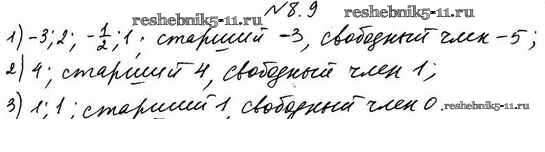 №8.9 reshebnik5-11.ru
1) -3; 2; -1/2; 1; старший -3, свободный член -5;
2) 4; старший 4, свободный член 1;
3) 1; 1; старший 1, свободный член 0. reshebnik5-11.ru
reshebnik5-11.ru